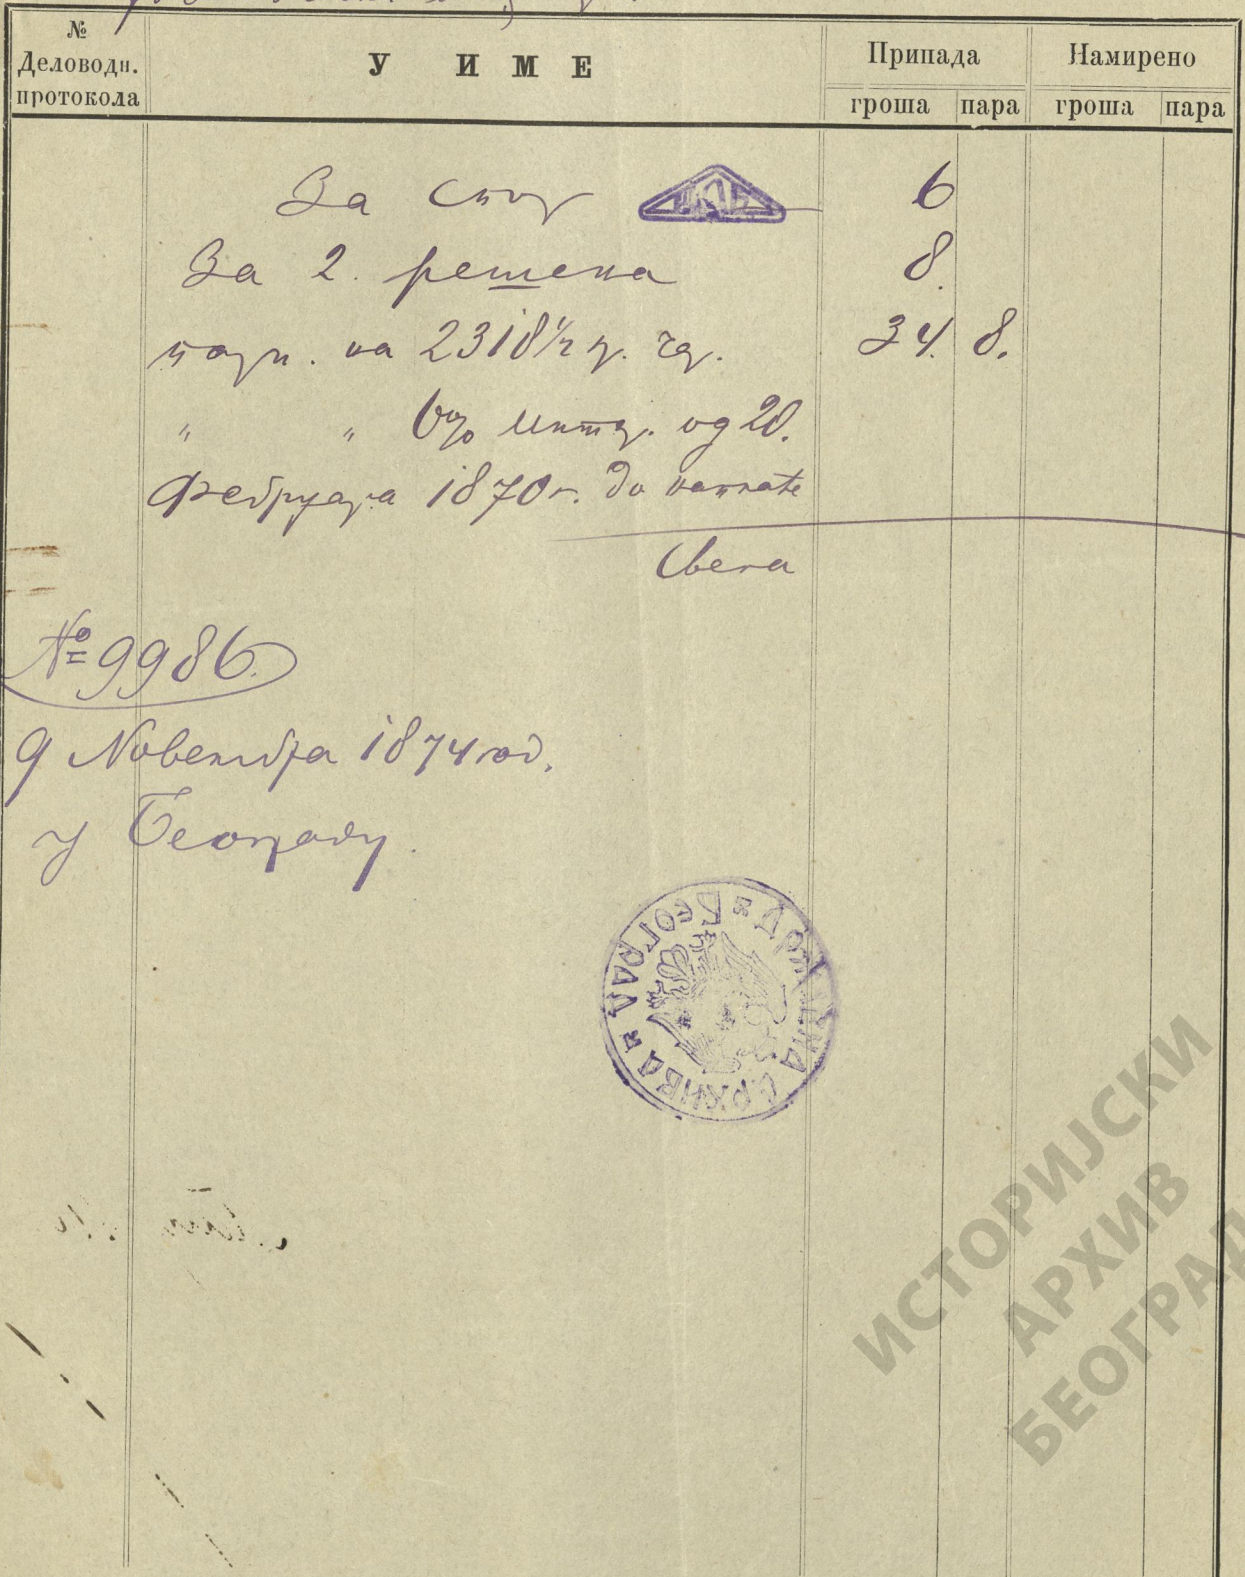 №
Деловодн.
протокола
У ИМЕ
Припада
Намирено
гроша
пара
гроша
пара
За
6
За 2. решења
8.
на 2318½ гр. чар.
34. 8.
" " 6% од 20.
Фебруара 1870 г. до наплате
Свега
№ 9986.
9 Новембра 1874 год.
у Београду.
ДРЖАВНА АРХИВА БЕОГРАД
ИСТОРИЈСКИ
АРХИВ
БЕОГРАД